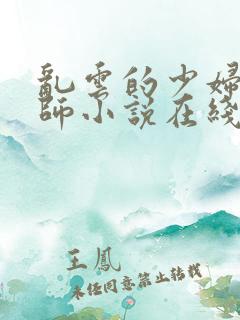 亂雲的少婦
師小說在綫
王鳳
未经同意禁止转载